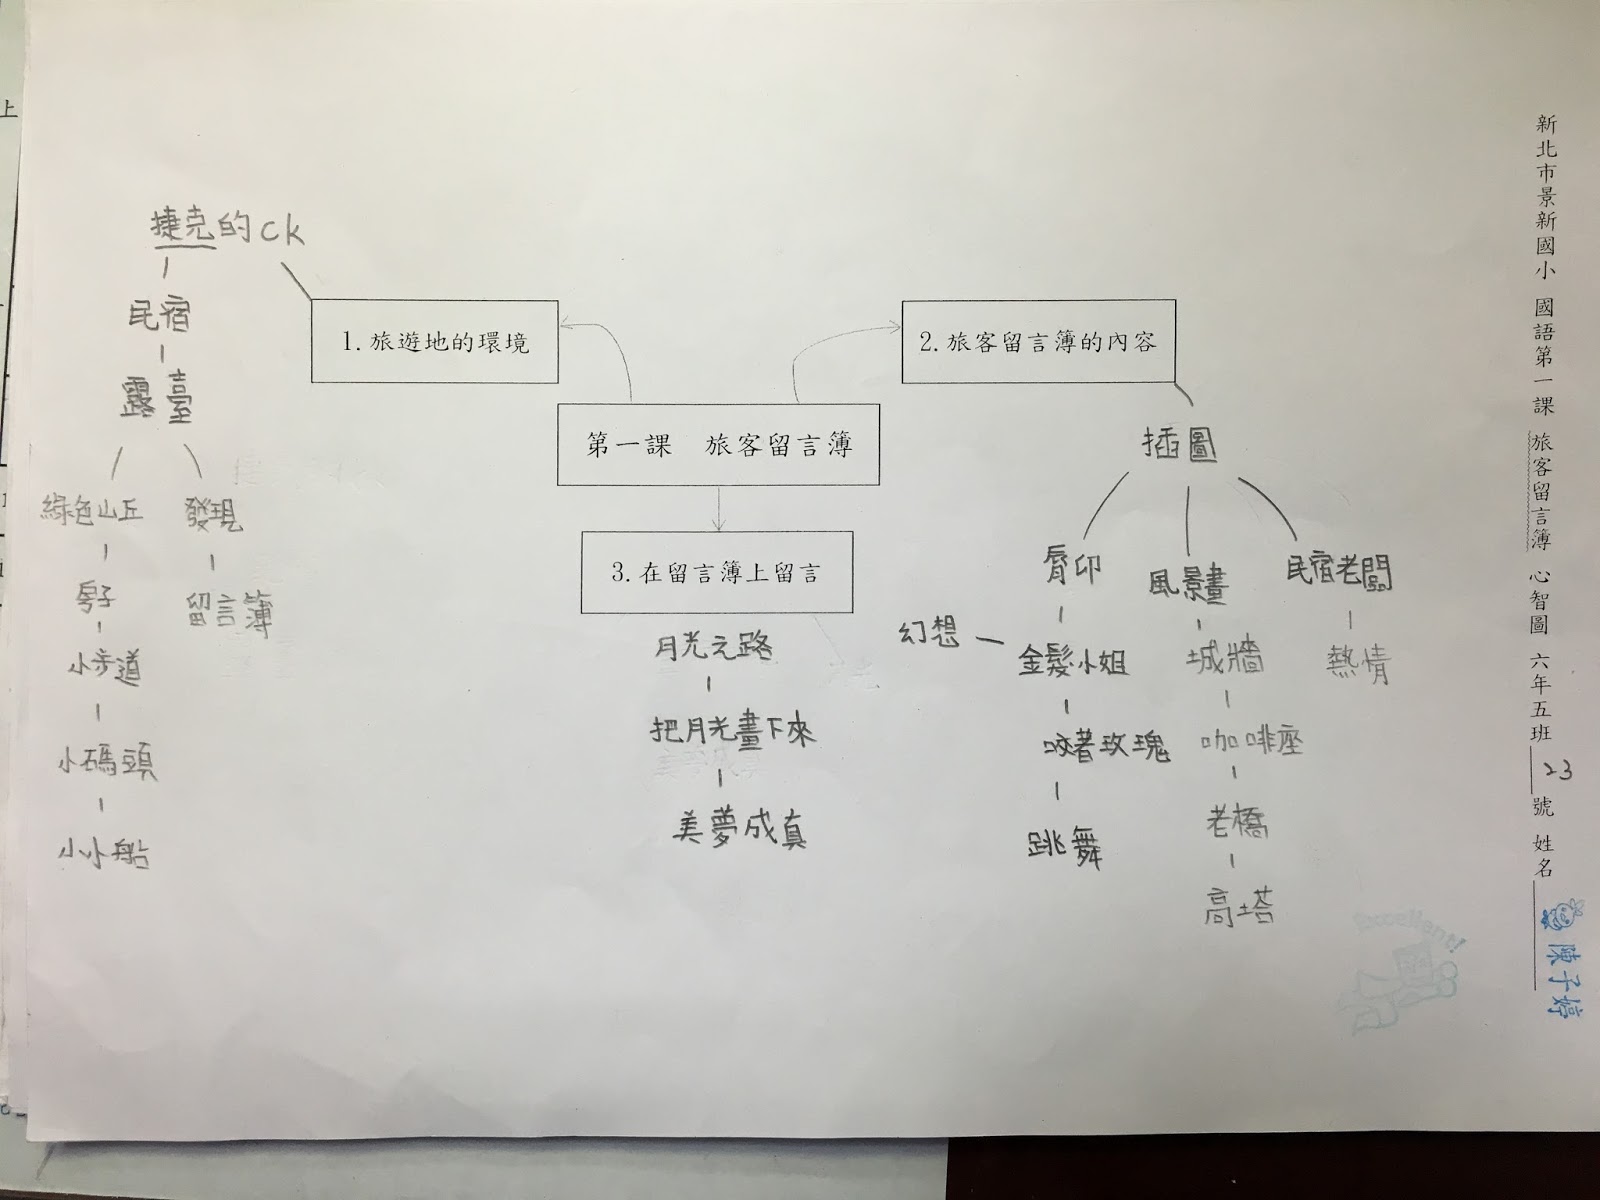 新北市景新國小 國語第一課 旅客留言簿 心智圖 六年五班 23 號 姓名 陳子婷
第一課 旅客留言簿
1.旅遊地的環境
捷克的ck
民宿
露臺
綠色山丘
房子
小步道
小碼頭
小小船
發現
留言簿
2.旅客留言簿的內容
插圖
唇印
幻想
金髮小姐
咬著玫瑰
跳舞
風景畫
城牆
咖啡座
老橋
高塔
民宿老闆
熱情
3.在留言簿上留言
月光之路
把月光畫下來
美夢成真
Excellent!
上